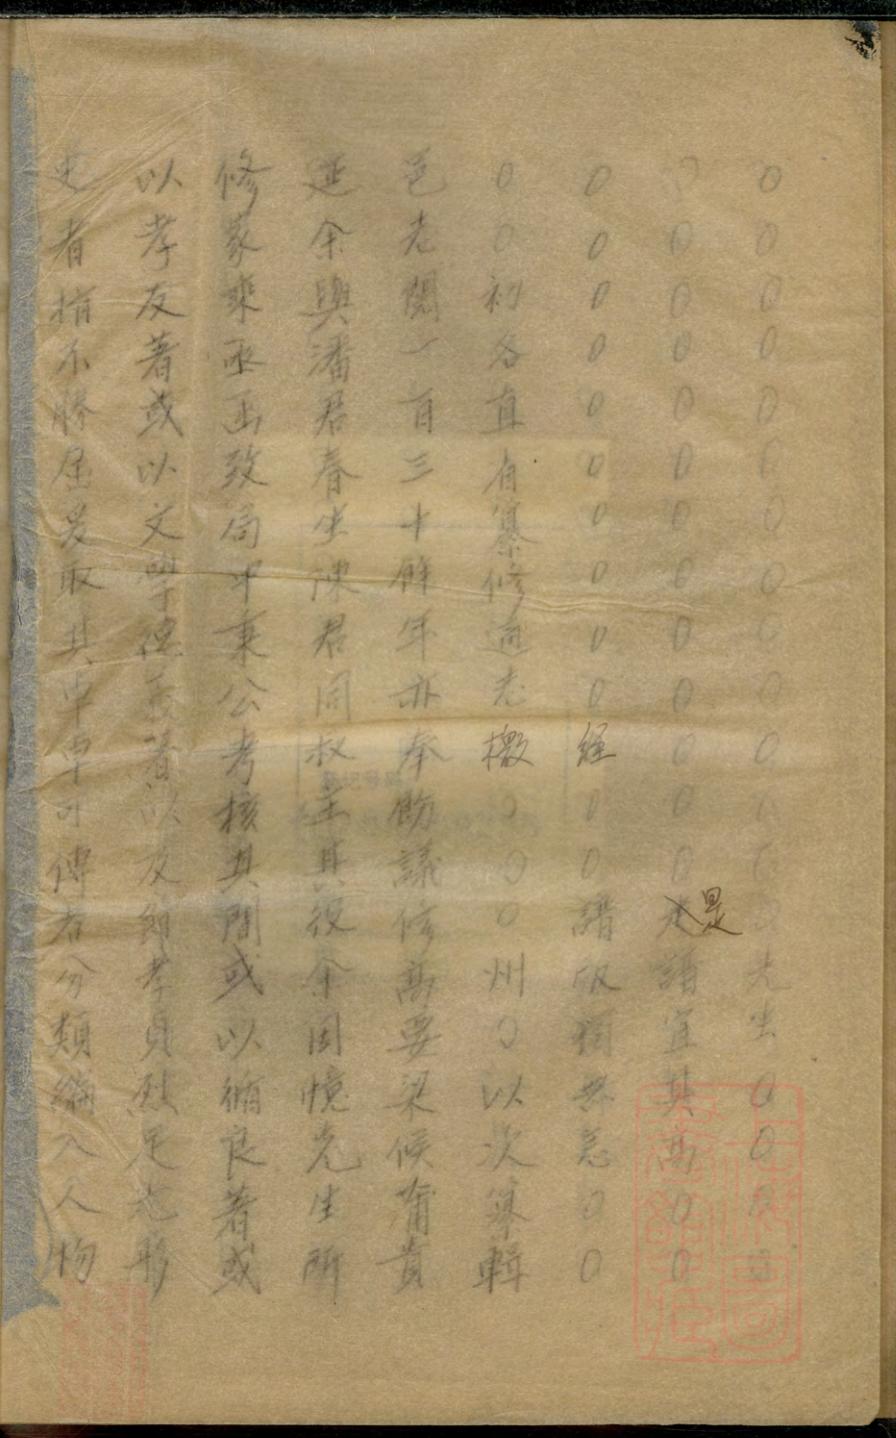 〇〇〇〇〇〇〇〇〇〇〇〇〇〇先生〇〇
〇〇〇〇〇〇〇〇〇〇〇〇〇是譜宜其高〇〇
〇〇〇〇〇〇〇〇〇〇經〇〇譜版獨無恙〇〇
〇〇初各直有纂修通志檄〇〇〇州〇以次纂輯
邑志閱一百三十餘年亦奉飭議修高要梁侯蒲貴
延余與潘君春生陳君同叔主其役余因憶先生所
修家乘亟函致局中秉公考核其間或以循良著或
以孝友著或以文學德義著以及節孝貞烈足志彤
史者指不勝屈爰取其卓卓可傳者分類編入人物